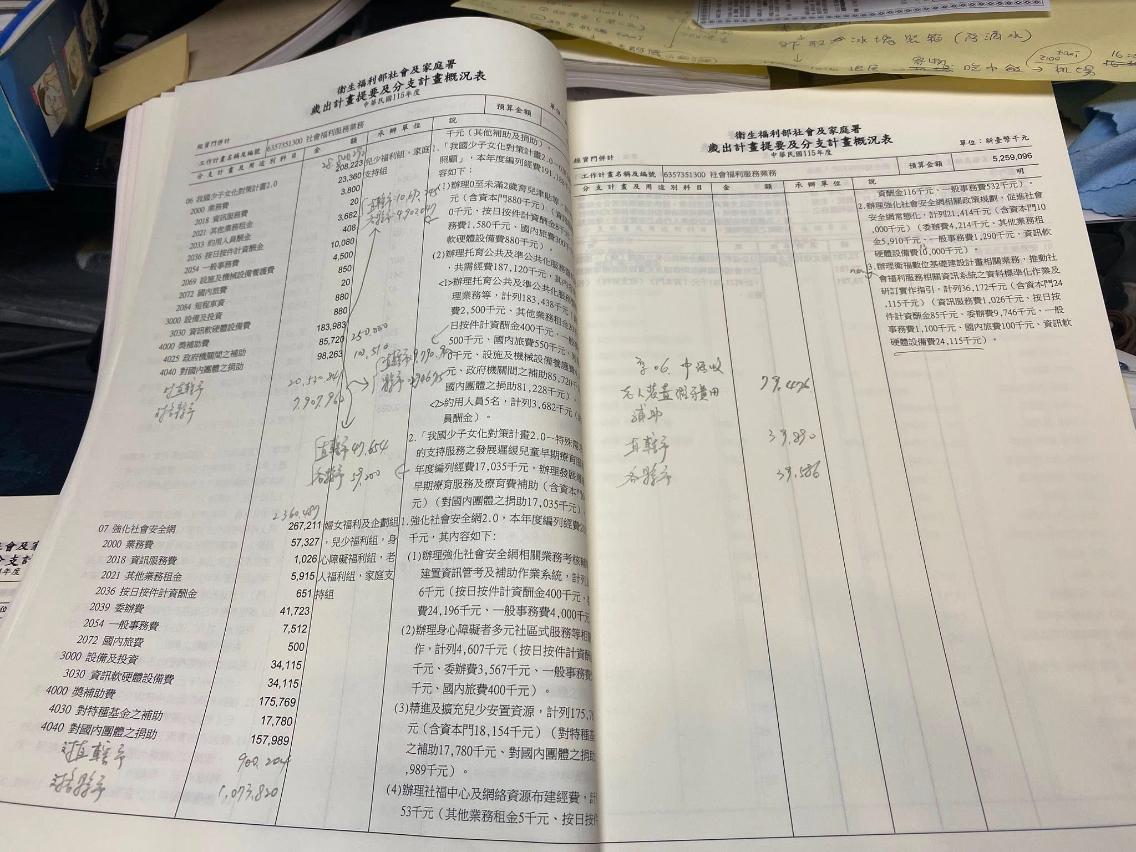 衛生福利部社會及家庭署
歲出計畫提要及分支計畫概況表
中華民國115年度
經資門併計
預算金額
工作計畫名稱及編號 6357351300 社會福利服務業務
分支計畫及用途別科目 金 額 承辦單位 說
06 我國少子女化對策計畫2.0 208,223 兒少福利組、家庭
2000 業務費 23,360 支持組
2018 資訊服務費 3,800
2021 其他業務租金 20
2033 約用人員酬金 3,682
2036 按日按件計資酬金 408
2054 一般事務費 10,080
2069 設施及機械設備養護費 4,500
2072 國內旅費 850
2084 短程車資 20
3000 設備及投資 880
3030 資訊軟硬體設備費 880
4000 獎補助費 183,983
4025 政府機關間之補助 85,720
4040 對國內團體之捐助 98,263
250,000
7,907,962
直轄市 49,654
各縣市 59,200
千元(其他補助及捐助)。
1.「我國少子女化對策計畫2.0
照顧」，本年度編列經費191,18
容如下：
(1)辦理0至未滿2歲育兒津貼等
(含資本門880千元)(資
0千元、按日按件計資酬金8千
務費1,580千元、國內旅費300千
軟硬體設備費880千元)。
(2)辦理托育公共及準公共化服務
，共需經費187,120千元，其內
<1>辦理托育公共及準公共化服務
理業務等，計列183,438千元
費2,500千元、其他業務租金20
日按件計資酬金400千元、一般
500千元、國內旅費550千元、
千元、設施及機械設備養護費
元、政府機關間之補助85,720千
國內團體之捐助81,228千元)。
<2>約用人員5名，計列3,682千元(
員酬金)。
2.「我國少子女化對策計畫2.0--特殊
的支持服務之發展遲緩兒童早期療育
年度編列經費17,035千元，辦理發展
早期療育服務及療育費補助(含資本門
元)(對國內團體之捐助17,035千元)。
2,360,489
07 強化社會安全網 267,211 婦女福利及企劃組
2000 業務費 57,327 、兒少福利組，身
2018 資訊服務費 1,026 心障礙福利組，老
2021 其他業務租金 5,915 人福利組，家庭支
2036 按日按件計資酬金 651 持組
2039 委辦費 41,723
2054 一般事務費 7,512
2072 國內旅費 500
3000 設備及投資 34,115
3030 資訊軟硬體設備費 34,115
4000 獎補助費 175,769
4030 對特種基金之補助 17,780
4040 對國內團體之捐助 157,989
對直轄市 900,204
對各縣市 1,073,820
1.強化社會安全網2.0，本年度編列經費2
千元，其內容如下：
(1)辦理強化社會安全網相關業務考核輔
建置資訊管考及補助作業系統，計列
6千元(按日按件計資酬金400千元、
費24,196千元、一般事務費4,000千元
(2)辦理身心障礙者多元社區式服務等相關
作，計列4,607千元(按日按件計資酬
千元、委辦費3,567千元、一般事務費
千元、國內旅費400千元)。
(3)精進及擴充兒少安置資源，計列175,7
元(含資本門18,154千元)(對特種基
之補助17,780千元、對國內團體之捐助
,989千元)。
(4)辦理社福中心及網絡資源布建經費，計
53千元(其他業務租金5千元、按日按件
衛生福利部社會及家庭署
歲出計畫提要及分支計畫概況表
中華民國115年度
經資門併計
單位：新臺幣千元
工作計畫名稱及編號 6357351300 社會福利服務業務 預算金額 5,259,096
分支計畫及用途別科目 金 額 承辦單位 說 明
資酬金116千元、一般事務費532千元)。
2.辦理強化社會安全網相關政策規劃，促進社會
安全網常態化，計列21,414千元(含資本門10
,000千元)(委辦費4,214千元、其他業務租
金5,910千元、一般事務費1,290千元、資訊軟
硬體設備費10,000千元)。
3.辦理衛福數位基礎建設計畫相關業務，推動社
會福利服務相關資訊系統之資料標準化作業及
研訂實作指引，計列36,172千元(含資本門24
,115千元)(資訊服務費1,026千元、按日按
件計資酬金85千元、委辦費9,746千元、一般
事務費1,100千元、國內旅費100千元、資訊軟
硬體設備費24,115千元)。
老人裝置假牙費用 79,476
補助
直轄市 39,890
各縣市 39,586